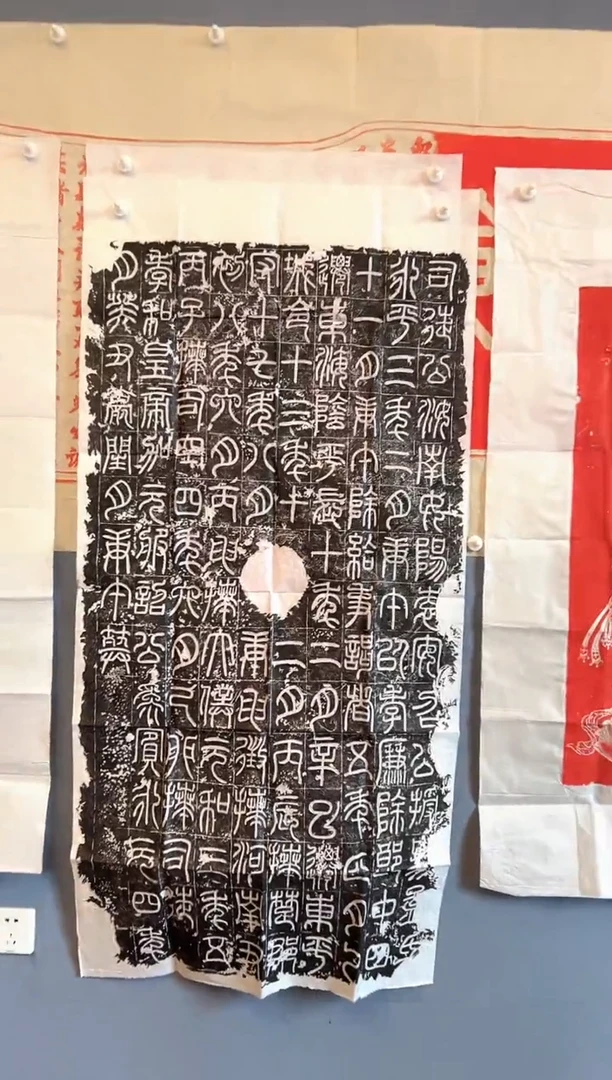 司徒公汝南女陽袁安召公授易孟氏
永平三年二月庚午以孝廉除郎中四
十一月庚午除給事謁者五年四月乙
遷東海陰平長十年二月辛巳遷東平
任城令十三年十二月丙辰拜楚郡
守十七年八月庚申徵拜河南尹
初八年六月丙申拜太僕元和三年五
丙子拜司空四年六月己卯拜司徒
孝和皇帝加元服詔公為賓永元四年
月癸丑薨閏月庚午葬